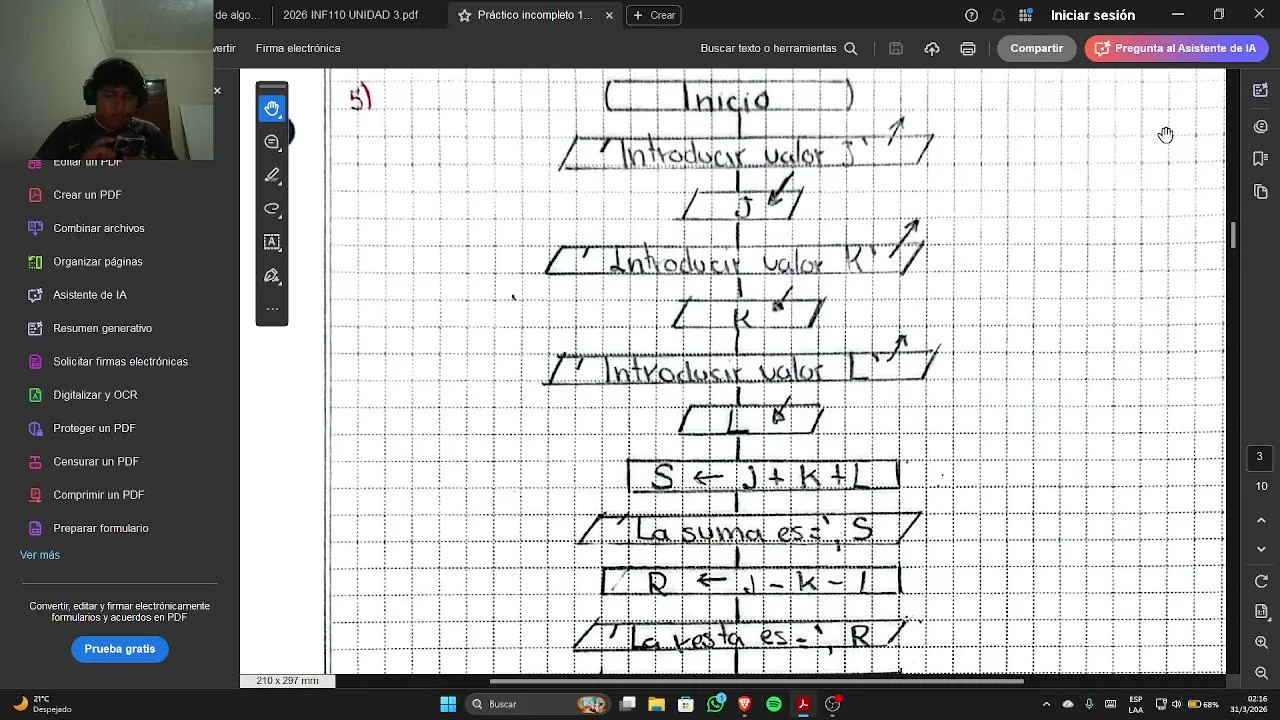 de algo...
2026 INF110 UNIDAD 3.pdf
Práctico incompleto 1...
Crear
Iniciar sesión
vertir
Firma electrónica
Buscar texto o herramientas
Compartir
Pregunta al Asistente de IA
Editar un PDF
Crear un PDF
Combinar archivos
Organizar páginas
Asistente de IA
Resumen generativo
Solicitar firmas electrónicas
Digitalizar y OCR
Proteger un PDF
Censurar un PDF
Comprimir un PDF
Preparar formulario
Ver más
Convertir, editar y firmar electrónicamente
formularios y acuerdos en PDF
Prueba gratis
5)
Inicio
'Introducir valor j'
J
'Introducir valor K'
K
'Introdusir valor L'
L
S ← j + K + L
'La suma es=', S
R ← j - k - l
'La resta es=', R
3
10
210 x 297 mm
21°C
Despejado
Buscar
1
ESP
LAA
68%
02:16
31/3/2026